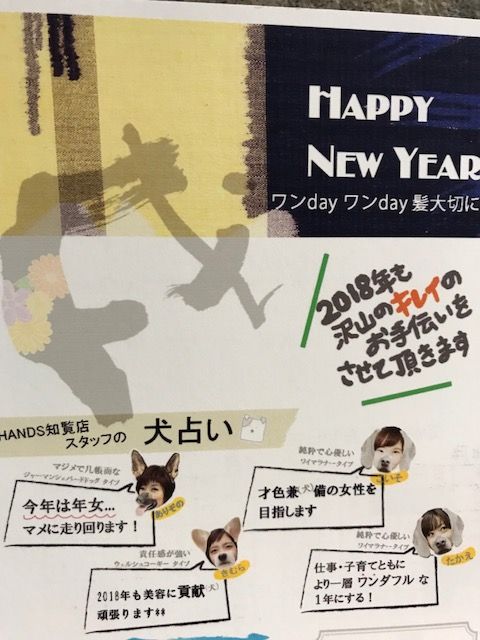 HAPPY
NEW YEAR
ワンday ワンday 髪大切に
2018年も
沢山のキレイの
お手伝いを
させて頂きます
HANDS知覧店
スタッフの 犬占い
マジメで几帳面な
ジャーマンシェパードドッグ タイプ
今年は年女...
マメに走り回ります！
ありぞの
純粋で心優しい
ワイマラナータイプ
才色兼(犬)備の女性を
目指します
責任感が強い
ウェルシュコーギー タイプ
2018年も美容に貢献(犬)
頑張ります**
きむら
純粋で心優しい
ワイマラナータイプ
仕事・子育てともに
より一層 ワンダフル な
1年にする！
たかえ